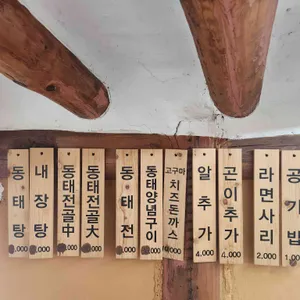 동태탕 ,000
내장탕 ,000
동태전골中 ,000
동태전골大 ,000
동태전
동태양념구이
고구마치즈돈까스
알추가 4,000
곤이추가 4,000
라면사리 2,000
공기밥 1,00